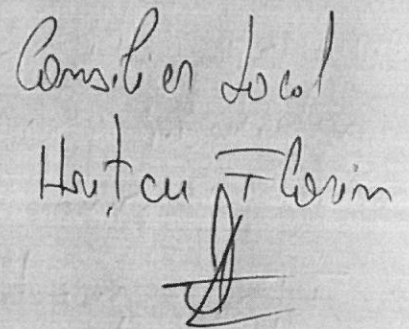 Consilier Local
Huțcu Florin